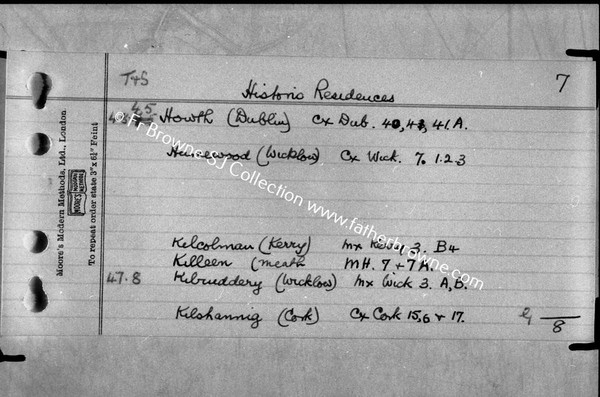 T+S
7
Historic Residences
45
Howth (Dublin) Cx Dub. 40, 43, 41A.
(Wicklow) Cx Wick. 7. 1.2.3
Kilcolman (Kerry) Mx Kerry 3. B4
Killeen (Meath MH. 7 + 7A.
47.8 Kilruddery (Wicklow) Mx Wick 3. A, B.
Kilshannig (Cork) Cx Cork 15, 6 + 17.
8
Moore's Modern Methods, Ltd., London.
MOORE'S
To repeat order state 3" x 6½" Feint
© Fr Browne SJ Collection www.fatherbrowne.com